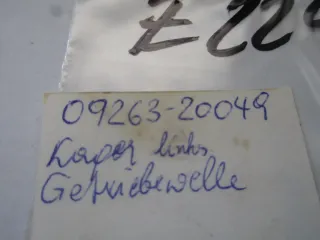 Z 22
09263-20049
Lager links
Getriebewelle